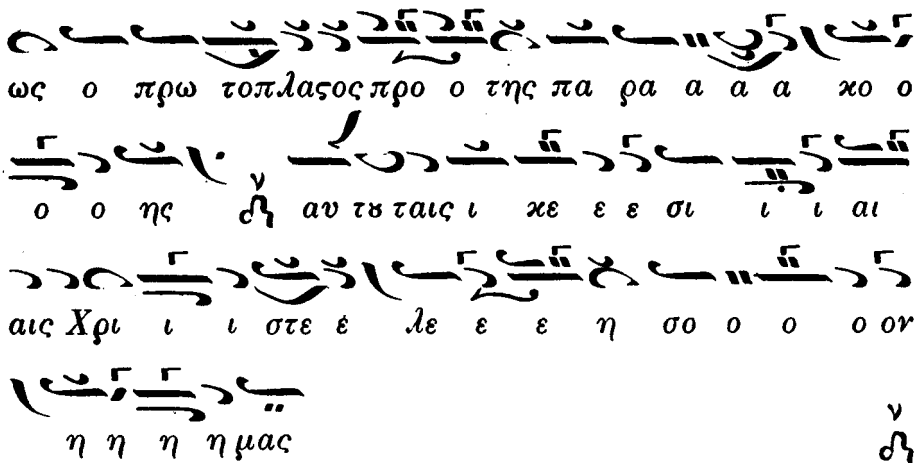 ως ο πρω τοπλαϛος προ ο της πα ρα α α α κο ο
ο ο ης ν αυ τȣ ταις ι κε ε ε σι ι ι αι
αις Χρι ι ι στε ἐ λε ε ε η σο ο ο ο ον
η η η η μας ν